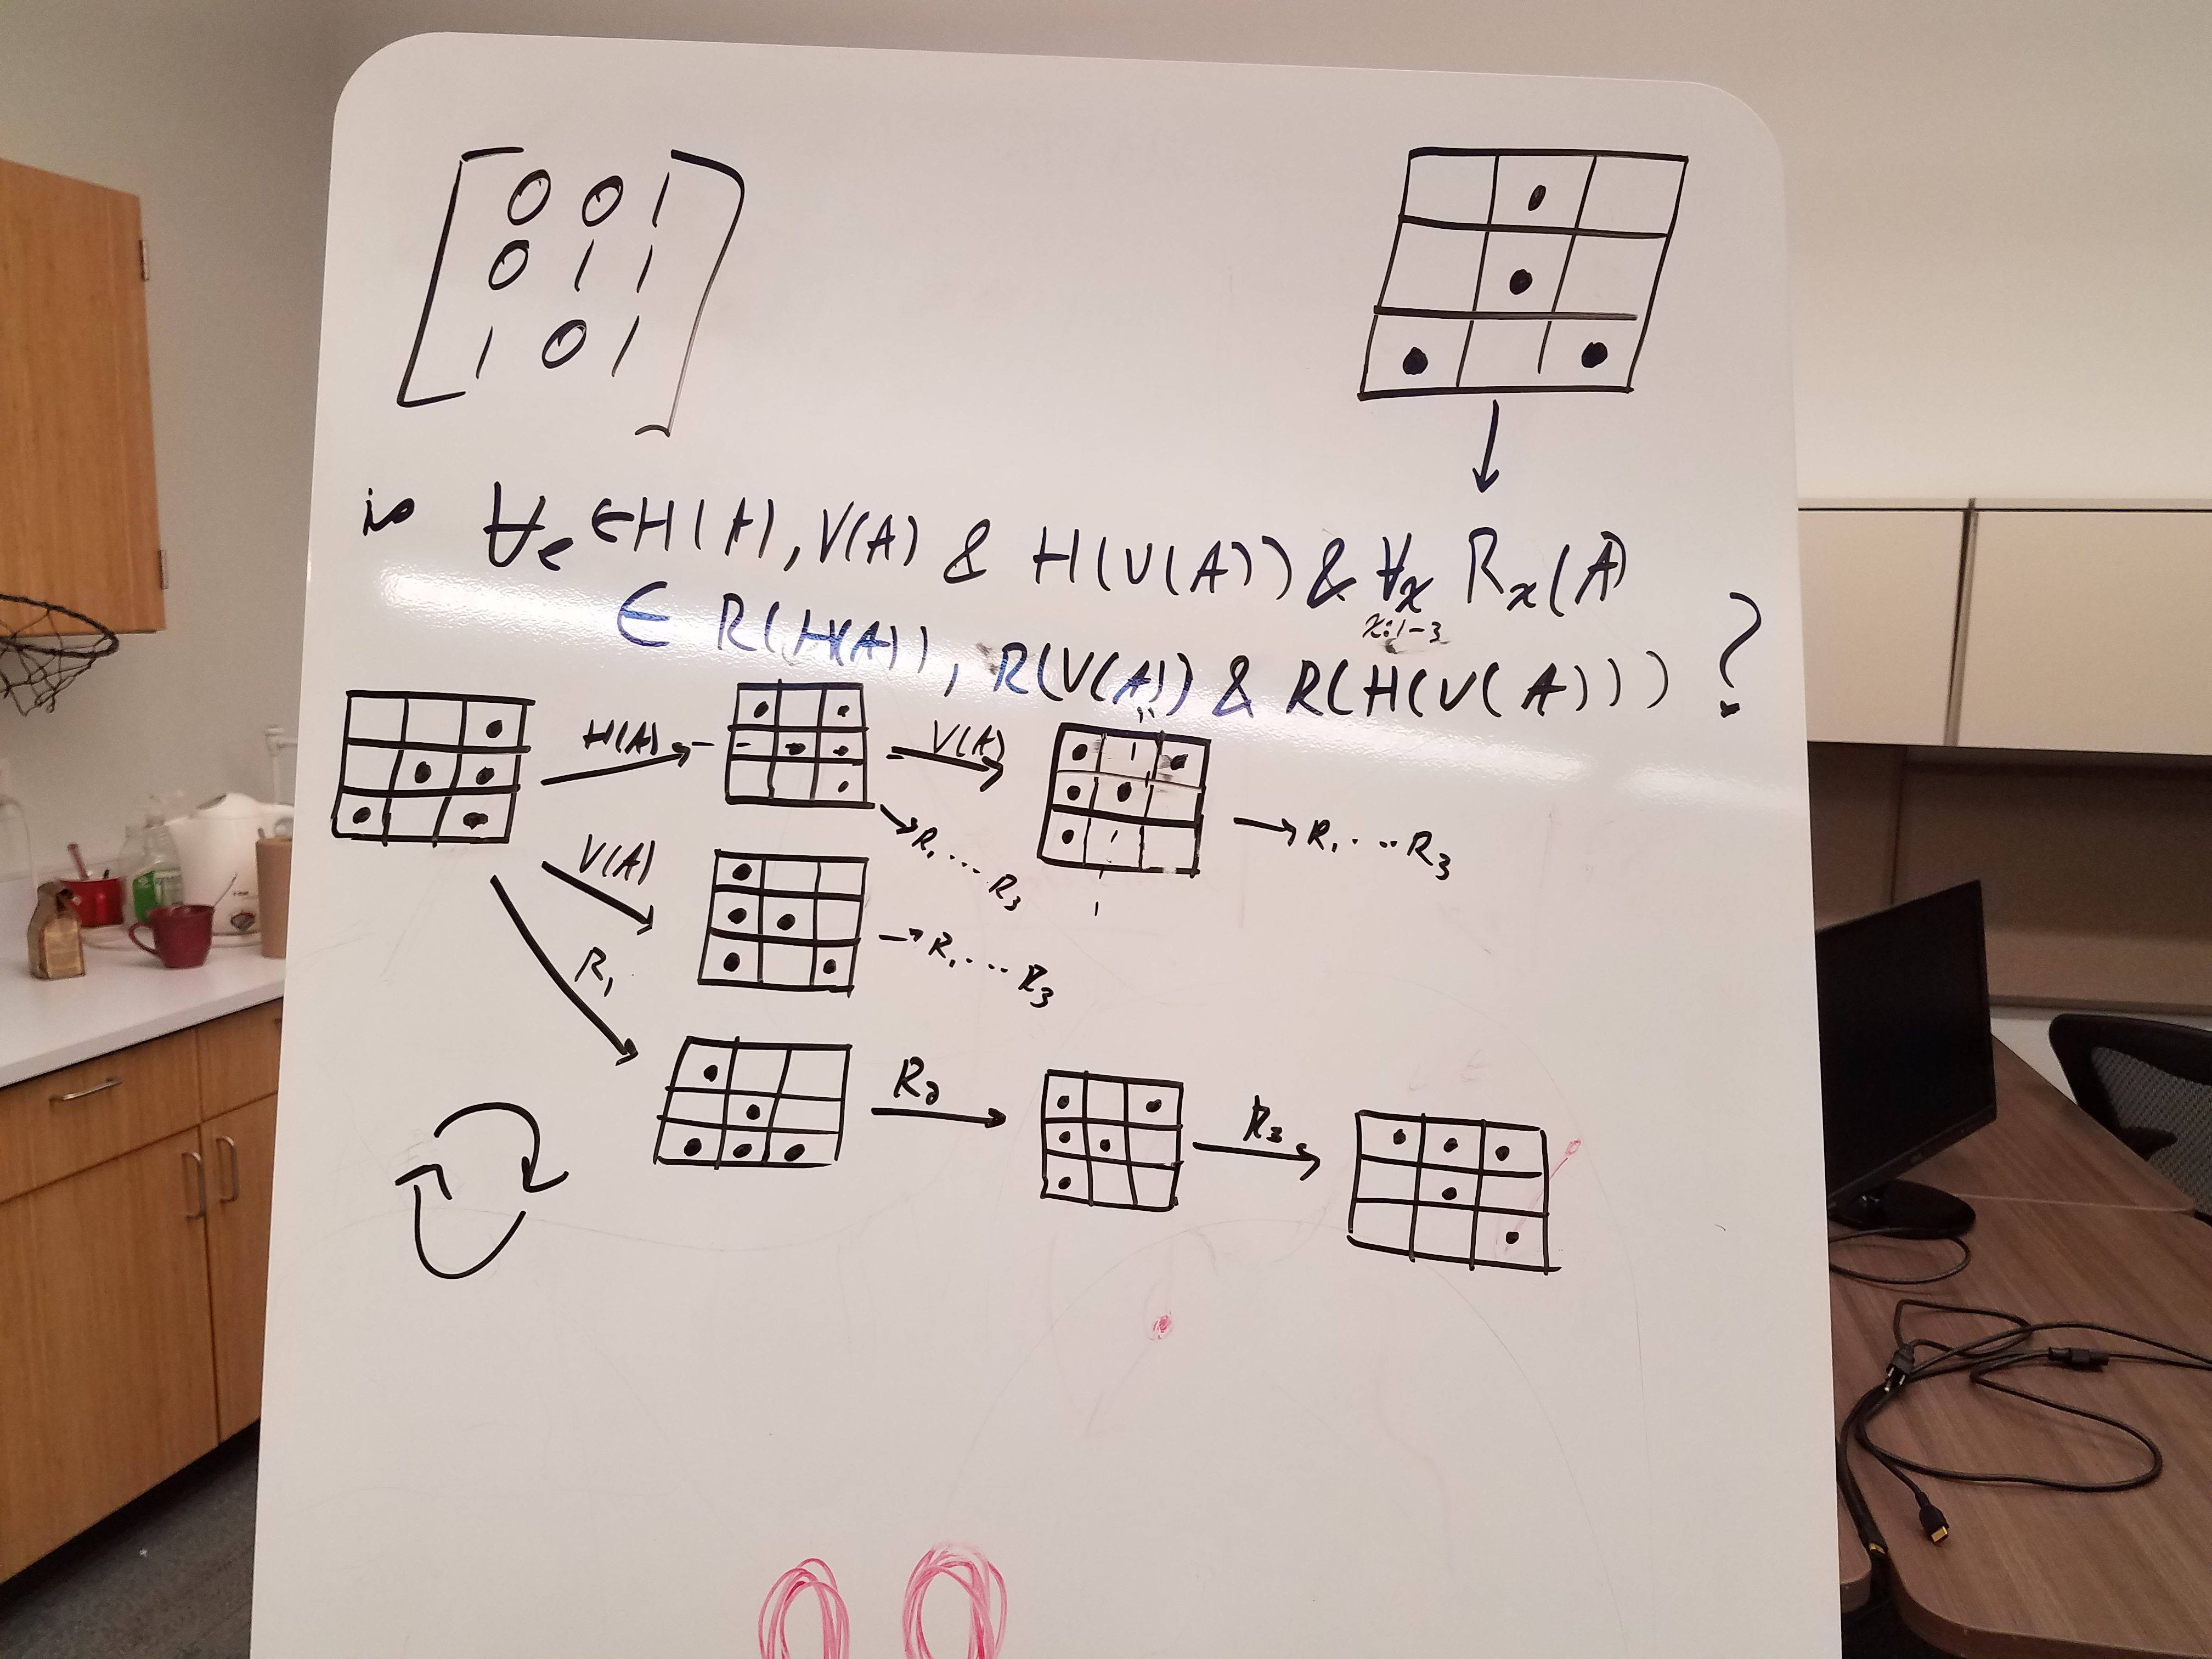 0 0 1
0 1 1
1 0 1
is ∀e ∈ H(A), V(A) & H(V(A)) & ∀x Rx(A)
x:1-3
∈ R(H(A)), R(V(A)) & R(H(V(A))) ?
H(A)
V(A)
R1 ... R3
R1 ... R3
V(A)
R1 ... R3
R1
R2
R3